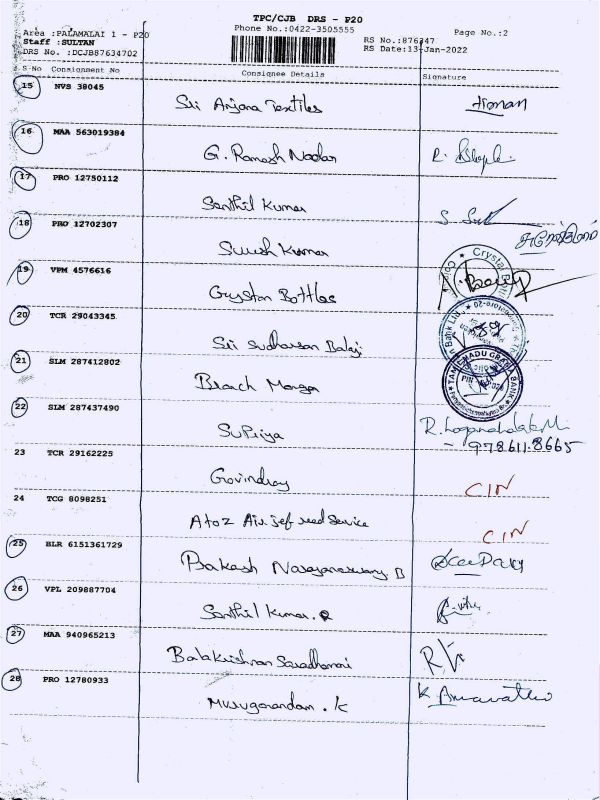 TPC/CJB DRS - P20
Area :PALAMALAI 1 - P20
Phone No.:0422-3505555
Page No.:2
Staff :SULTAN
RS No.:876347
DRS No. :DCJB87634702
RS Date:13-Jan-2022
S No Consignment No Consignee Details Signature
15 NVS 38045
Sri Anjana Textiles
16 MAA 563019384
G. Ramesh Nadar
17 PRO 12750112
Senthil Kumar
18 PRO 12702307
Suresh Kumar
19 VPM 4576616
Crystan Bottles
20 TCR 29043345
Sri Sudharsan Balaji
21 SLM 287412802
Branch Manger
TAMILNADU GRAMA BANK
22 SLM 287437490
Supriya
23 TCR 29162225
Govindraj
CIN
24 TCG 8098251
A to Z Air Jef med Service
CIN
25 BLR 6151361729
26 VPL 209887704
Senthil Kumar.
27 MAA 940965213
28 PRO 12780933
Muruganandam . K